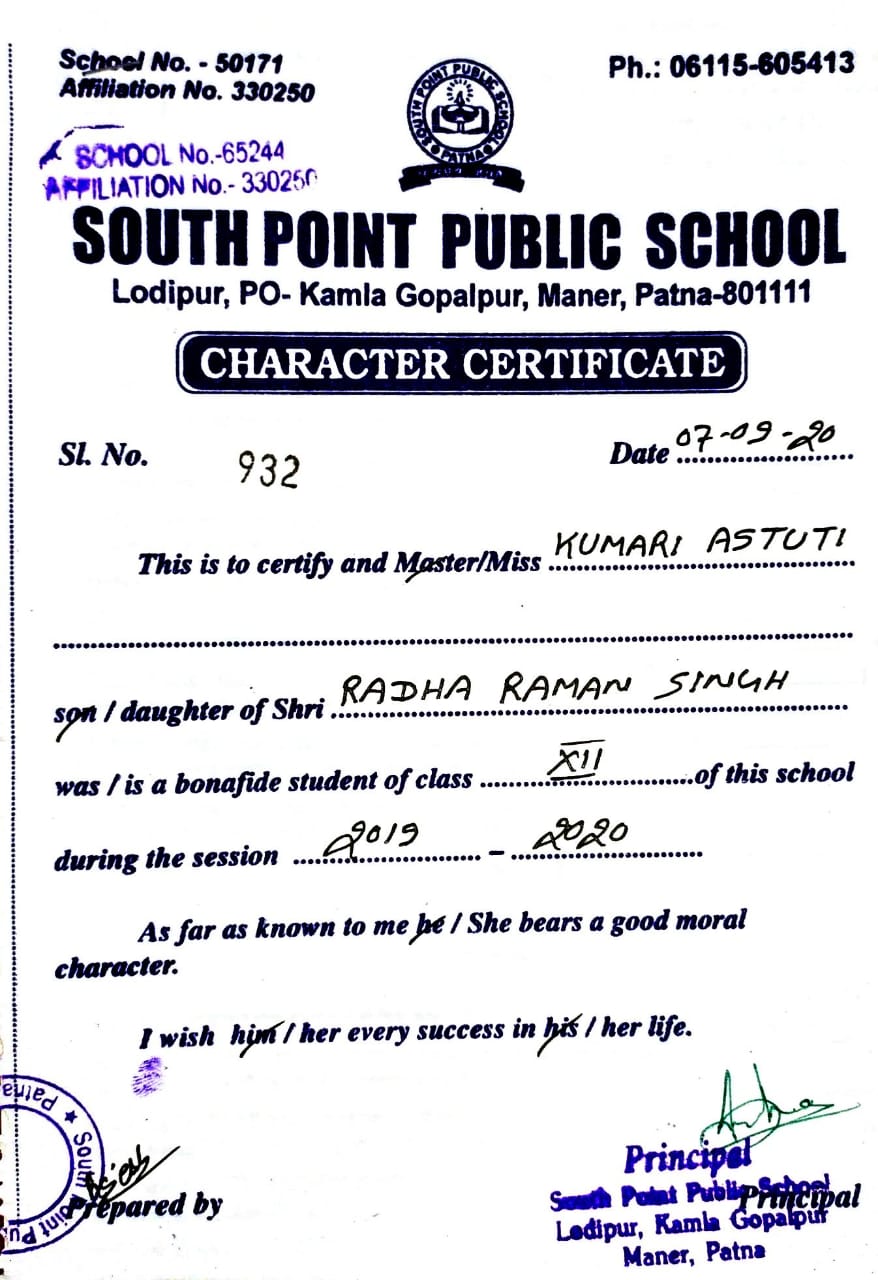 School No. - 50171
Affiliation No. 330250
Ph.: 06115-605413
SCHOOL No.-65244
AFFILIATION No.- 330250
SOUTH POINT PUBLIC SCHOOL
PATNA
SOUTH POINT PUBLIC SCHOOL
Lodipur, PO- Kamla Gopalpur, Maner, Patna-801111
CHARACTER CERTIFICATE
Sl. No. 932
Date 07-09-20
This is to certify and Master/Miss KUMARI ASTUTI
son / daughter of Shri RADHA RAMAN SINGH
was / is a bonafide student of class XII of this school
during the session 2019 – 2020
As far as known to me he / She bears a good moral
character.
I wish him / her every success in his / her life.
Patna ★ South Point Pu
Prepared by
Principal
Principal
South Point Public School
Lodipur, Kamla Gopalpur
Maner, Patna